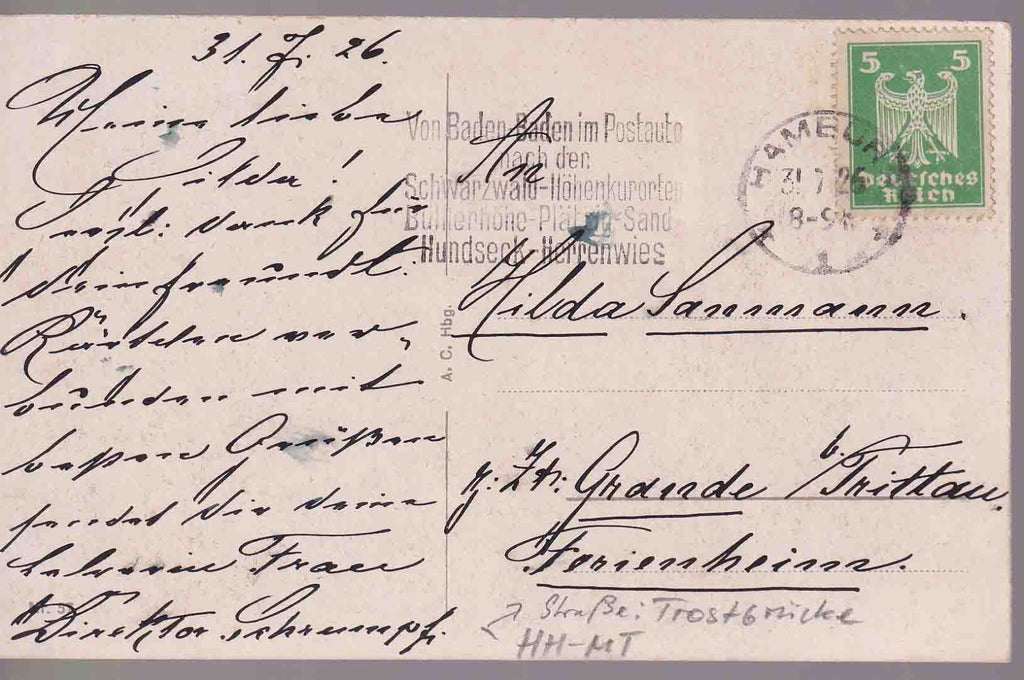 31. 7. 26.
Meine liebe
Hilda!
Herzl. Dank für
Dein freundl.
Kärtchen ver-
bunden mit
besten Grüßen
sendet Dir Deine
Lehrerin Frau
Direktor Schrumpf.
Von Baden-Baden im Postauto
nach den
Schwarzwald-Höhenkurorten
Bühlerhöhe-Plättig-Sand
Hundseck-Herrenwies
HAMBURG
31.7.26
8-9V
1
5 5
Deutsches
Reich
A. C. Hbg.
An
Hilda Sanmann.
z. Zt. Grande b. Trittau.
Ferienheim.
Straße: Trostbrücke
HH-MT